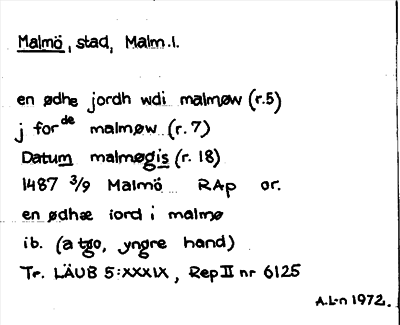 Malmö, stad, Malm.l.
en ødhe jordh wdi malmøw (r.5)
j for de malmøw (r.7)
Datum malmøgis (r. 18)
1487 3/9 Malmö RAp or.
en ødhæ iord i malmø
ib. (a tgo, yngre hand)
Tr. LÄUB 5:XXXIX, Rep II nr 6125
A.L-n 1972.